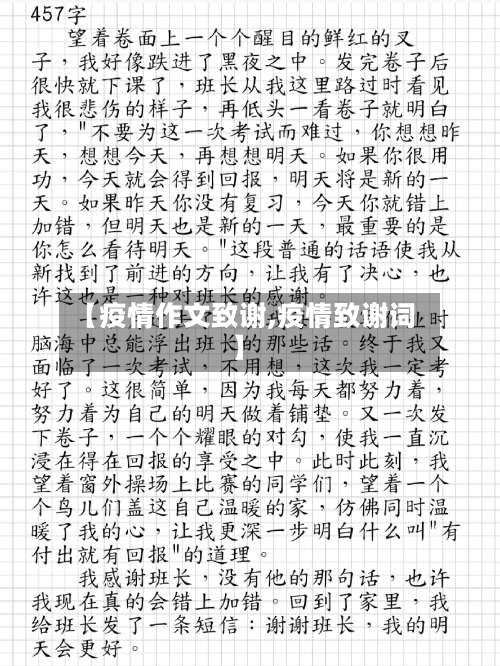 457字
望着卷面上一个个醒目的鲜红的叉
子，我好像跌进了黑夜之中。发完卷子后
很快就下课了，班长从我这里路过时看见
我很悲伤的样子，再低头一看卷子就明白
了，"不要为这一次考试而难过，你想想昨
天，想想今天，再想想明天。如果你很用
功，今天就会得到回报，明天将是新的一
天。如果昨天你没有复习，今天你就错上
加错，但明天也是新的一天，最重要的是
你怎么看待明天。"这段普通的话语使我从
新找到了前进的方向，让我有了决心，也
许这也是一种对班长的感谢。
【疫情作文致谢,疫情致谢词
】
业时
脑海中总能浮出班长的那些话。终于我又
面临了一次考试，不用想，这次我一定考
好了。这很简单，因为我每天都努力着，
努力着为自己的明天做着铺垫。又一次发
下卷子，一个个耀眼的对勾，使我一直沉
浸在得在回报的享受之中。此时此刻，我
望着窗外操场上比赛的同学们，望着一个
个鸟儿们盖这自己温暖的家，仿佛同时温
暖了我的心，让我更深一步明白什么叫"有
付出就有回报"的道理。
我感谢班长，没有他的那句话，也许
我现在真的会错上加错。回到了家里，我
给班长发了一条短信：谢谢班长，我的明
天会更好。